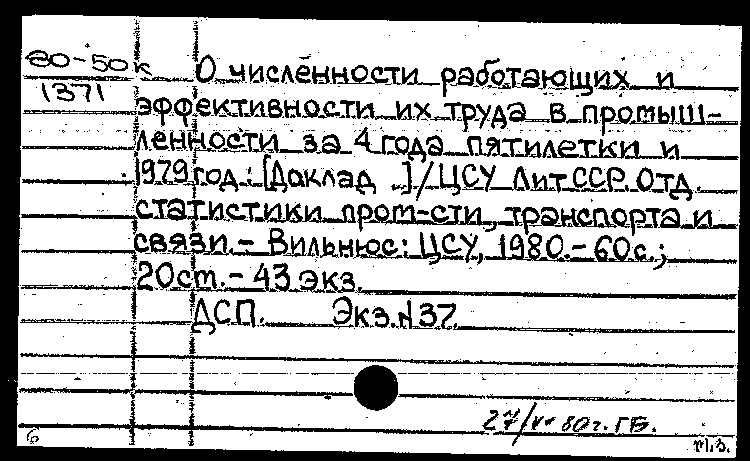 80-50к
1371
О численности работающих и
эффективности их труда в промыш-
ленности за 4 года пятилетки и
1979 год: [Доклад ..]/ЦСУ ЛитССР. Отд.
статистики пром-сти, транспорта и
связи.- Вильнюс: ЦСУ, 1980.-60с.;
20ст.-43 экз.
ДСП. Экз.N37.
80г. ГБ.
6
т.з.